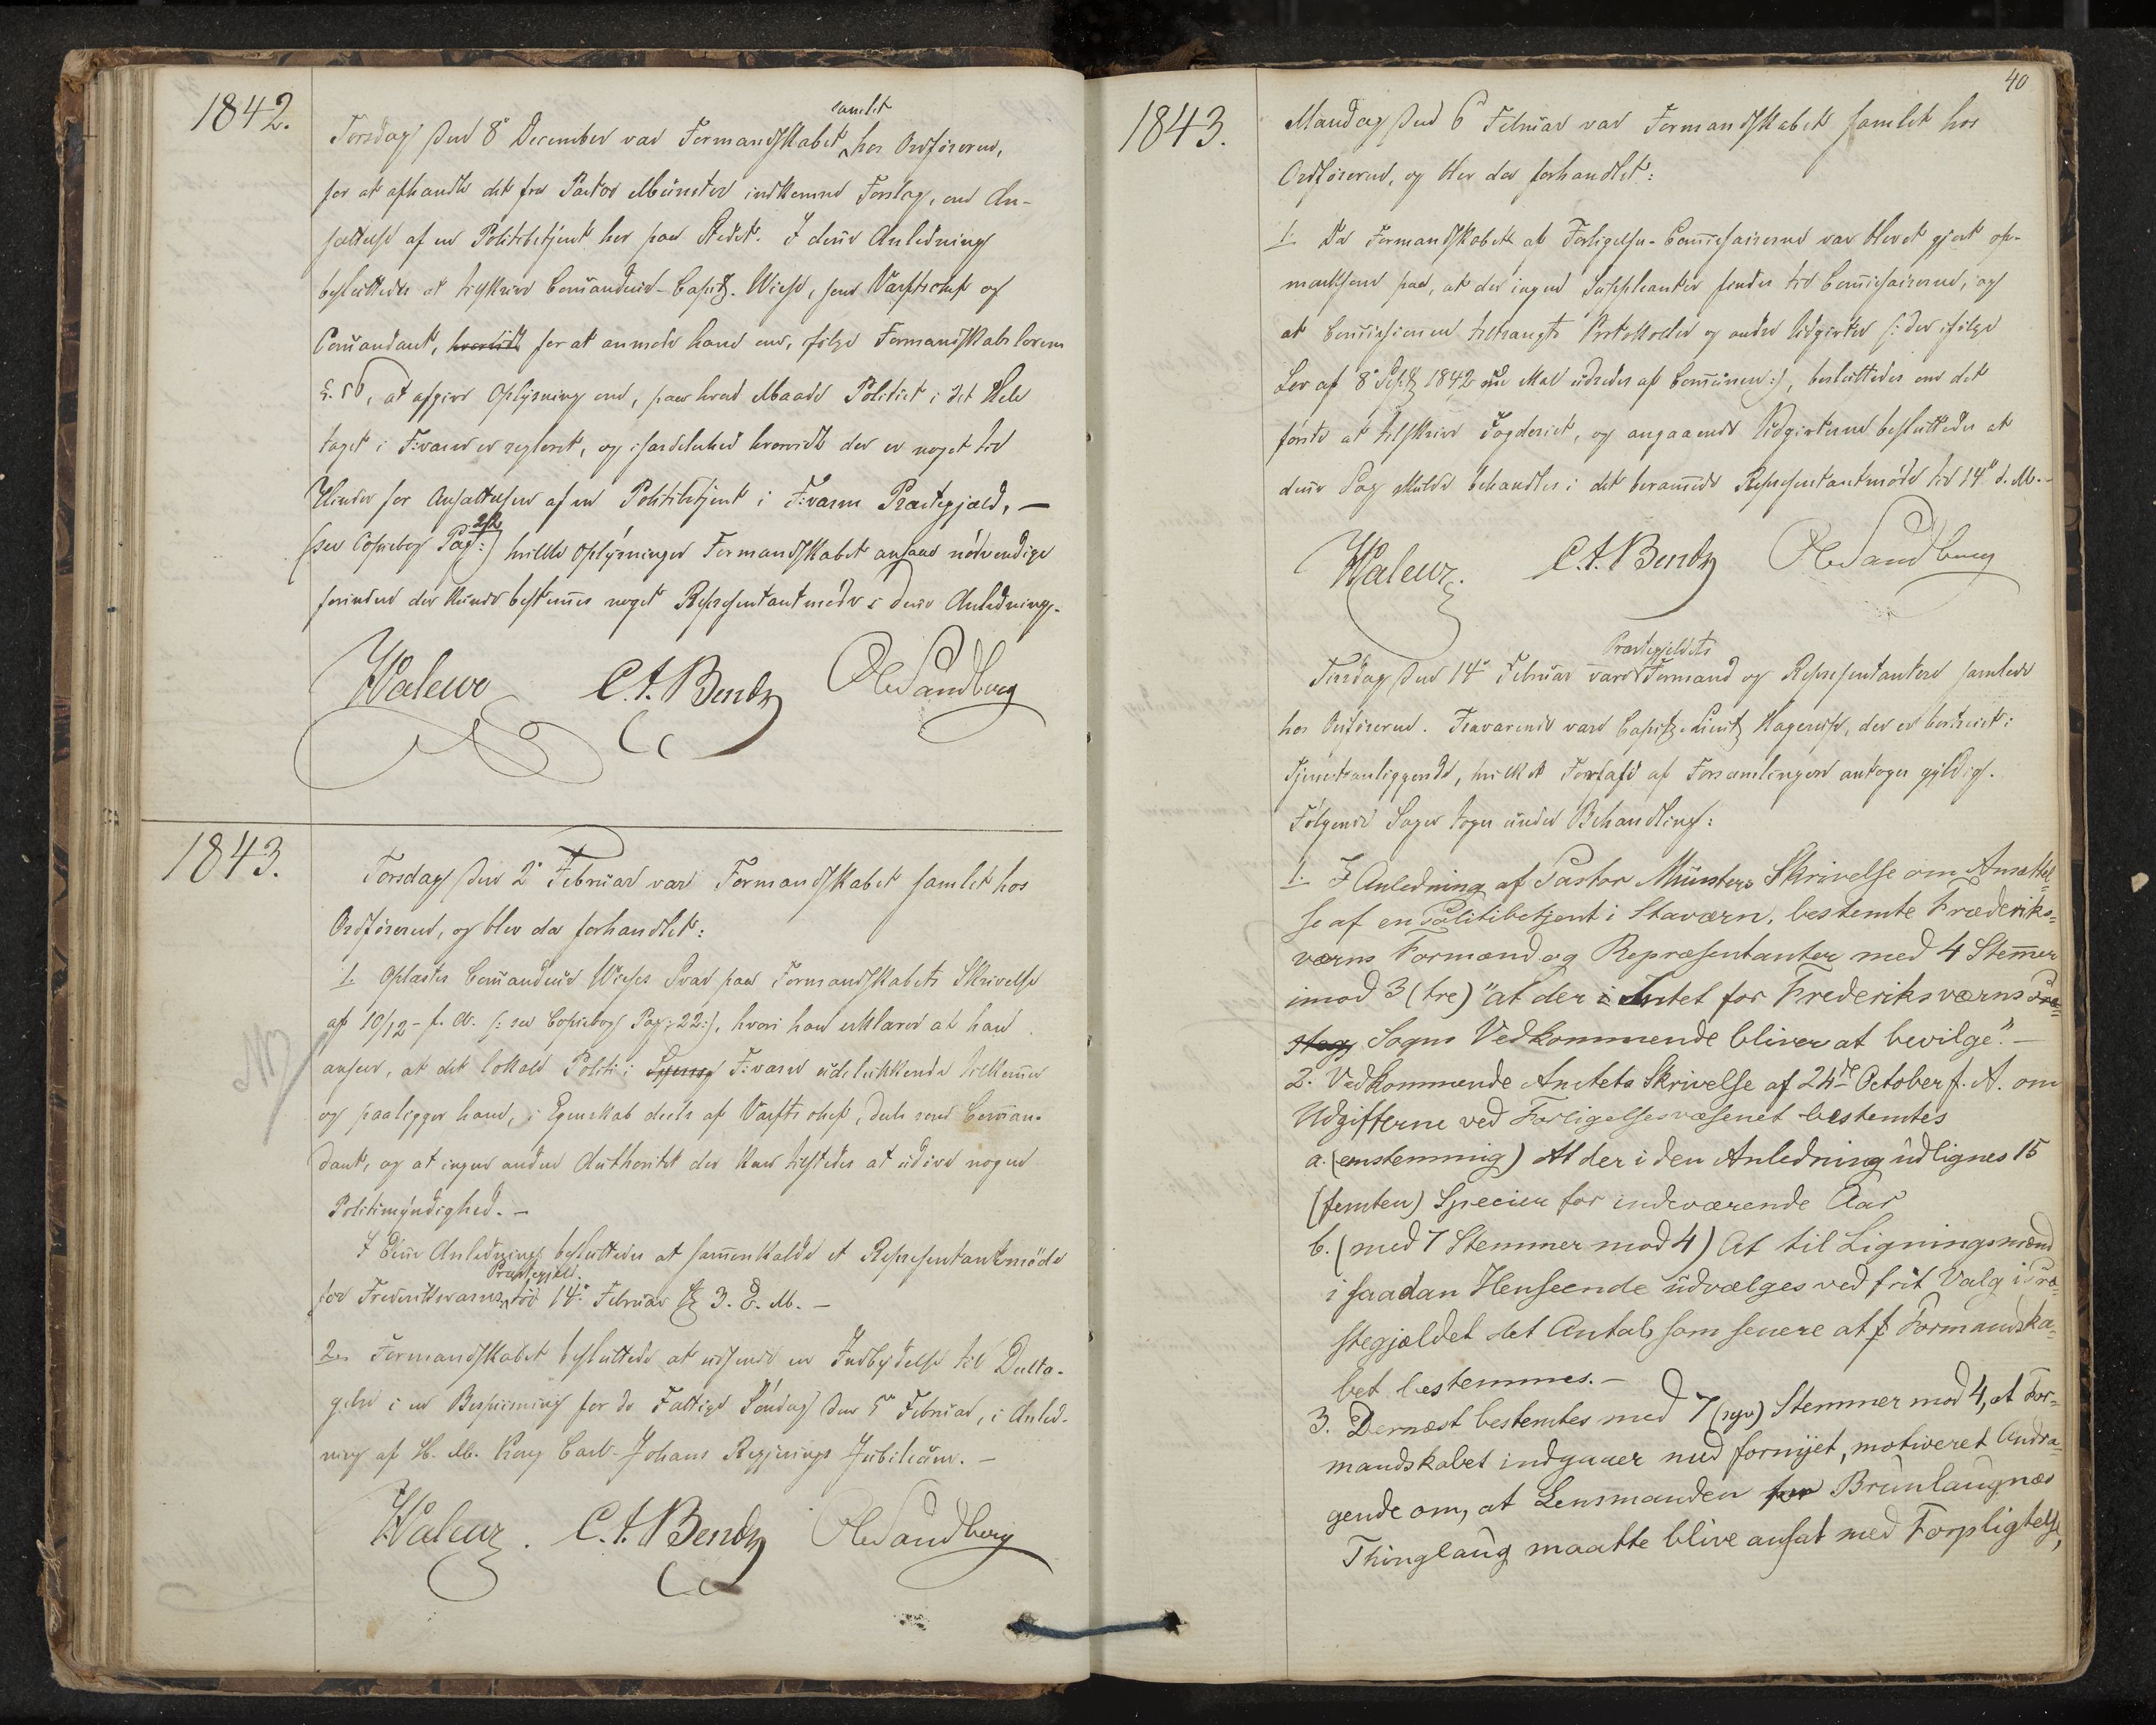 1842.
samlet
Torsdag den 8de December var Formandskabet hos Ordføreren,
for at afhandle det fra Pastor Münster indkomne Forslag, om An-
sættelse af en Politibetjent her paa Stedet. I denne Anledning
besluttedes at tilskrive Comanderer-Capit. Wiese, som Værftschef og
Comandant, hvorvidt for at anmode ham om, ifølge Formandskabsloven
§. 56, at afgive Oplysning om, paa hvad Maade Politiet i det Hele
taget i F:værn er reguleret, og i særdeleshed hvorvidt der er noget til
Hinder for Ansættelsen af en Politibetjent i F:værns Præstegjæld, —
(see Copiebog Pag: ) hvilke Oplysninger Formandskabet ansaae nødvendige
forinden der kunde bestemmes noget Repræsentantmøde i denne Anledning.
Waleur C. A. Bentz Ole Sandberg
1843.
Torsdag den 2de Februar var Formandskabet samlet hos
Ordføreren, og blev da forhandlet:
1. Oplæstes Comandeur Wieses Svar paa Formandskabets Skrivelse
af 10/12 f. A. (: see Copiebog Pag: 22:), hvori han erklærer at han
NB
anseer, at det lokale Politi i F:værn udelukkende tilkommer
og paaligger ham, i Egenskab deels af Værftschef, deels som Comman-
dant, og at ingen anden Authoritet der kan tilstedes at udøve nogen
Politimyndighed. —
I denne Anledning besluttedes at sammenkalde et Repræsentantmøde
Præstegjeld
for Frederiksværns til 14de Februar Kl 3. E. M. —
2. Formandskabet besluttede at udsende en Indbydelse til Delta-
gelse i en Bespisning for de Fattige Søndag den 5te Februar, i Anled-
ning af H. M. Kong Carl-Johans Regjerings Jubilæum. —
Waleur. C. A. Bentz Ole Sandberg
40
1843.
Mandag den 6 Februar var Formandskabet samlet hos
Ordføreren, og blev da forhandlet:
1. Da Formandskabet af Forligelses-Comissairerne var blevet gjort op-
mærksom paa, at der ingen Suppleanter findes til Comissairerne, og
at Comissionen tiltrængte Protokoller og andre Udgivter (: der ifølge
Lov af 8de Sept 1842 udredes af Comunen:), besluttedes om det
første at tilskrive Fogderiet, og angaaende Udgivterne besluttedes at
denne Sag skulde behandles i det berammede Repræsentantmøde til 14de d. M. —
Waleur. C. A. Bentz Ole Sandberg
Præstegjeldets
Tirsdag den 14de Februar vare Formænd og Repræsentanterne samlede
hos Ordføreren. Fraværende vare Capit. Lieut Hagerup, der er bortreist i
Tjenesteanliggende, hvilket Forfald af Forsamlingen antoges gyldig.
Følgende Sager toges under Behandling:
1. I Anledning af Pastor Münsters Skrivelse om Ansættel-
se af en Politibetjent i Staværn, bestemte Frederiks-
værns Formænd og Repræsentanter med 4 Stemmer
imod 3 (tre) "at der i Intet for Frederiksværns Præ-
steg Sogns Vedkommende bliver at bevilge." —
2. Vedkommende Amtets Skrivelse af 24de October f. A. om
Udgifterne ved Forligelsesvæsenet bestemtes
a. (enstemmig) At der i den Anledning udlignes 15
(femten) Specier for indeværende Aar
b. (med 7 Stemmer mod 4) At til Ligningsmænd
i saadan Henseende udvælges ved frit Valg i Præ-
stegjældet det Antal, som senere af Formandska-
bet bestemmes. —
3. Dernæst bestemtes med 7 (syv) Stemmer mod 4, at For-
mandskabet indgaaer med fornyet, motiveret Andra-
gende om, at Lensmanden for Brunlaugnæs
Thinglaug maatte blive ansat med Forpligtelse,